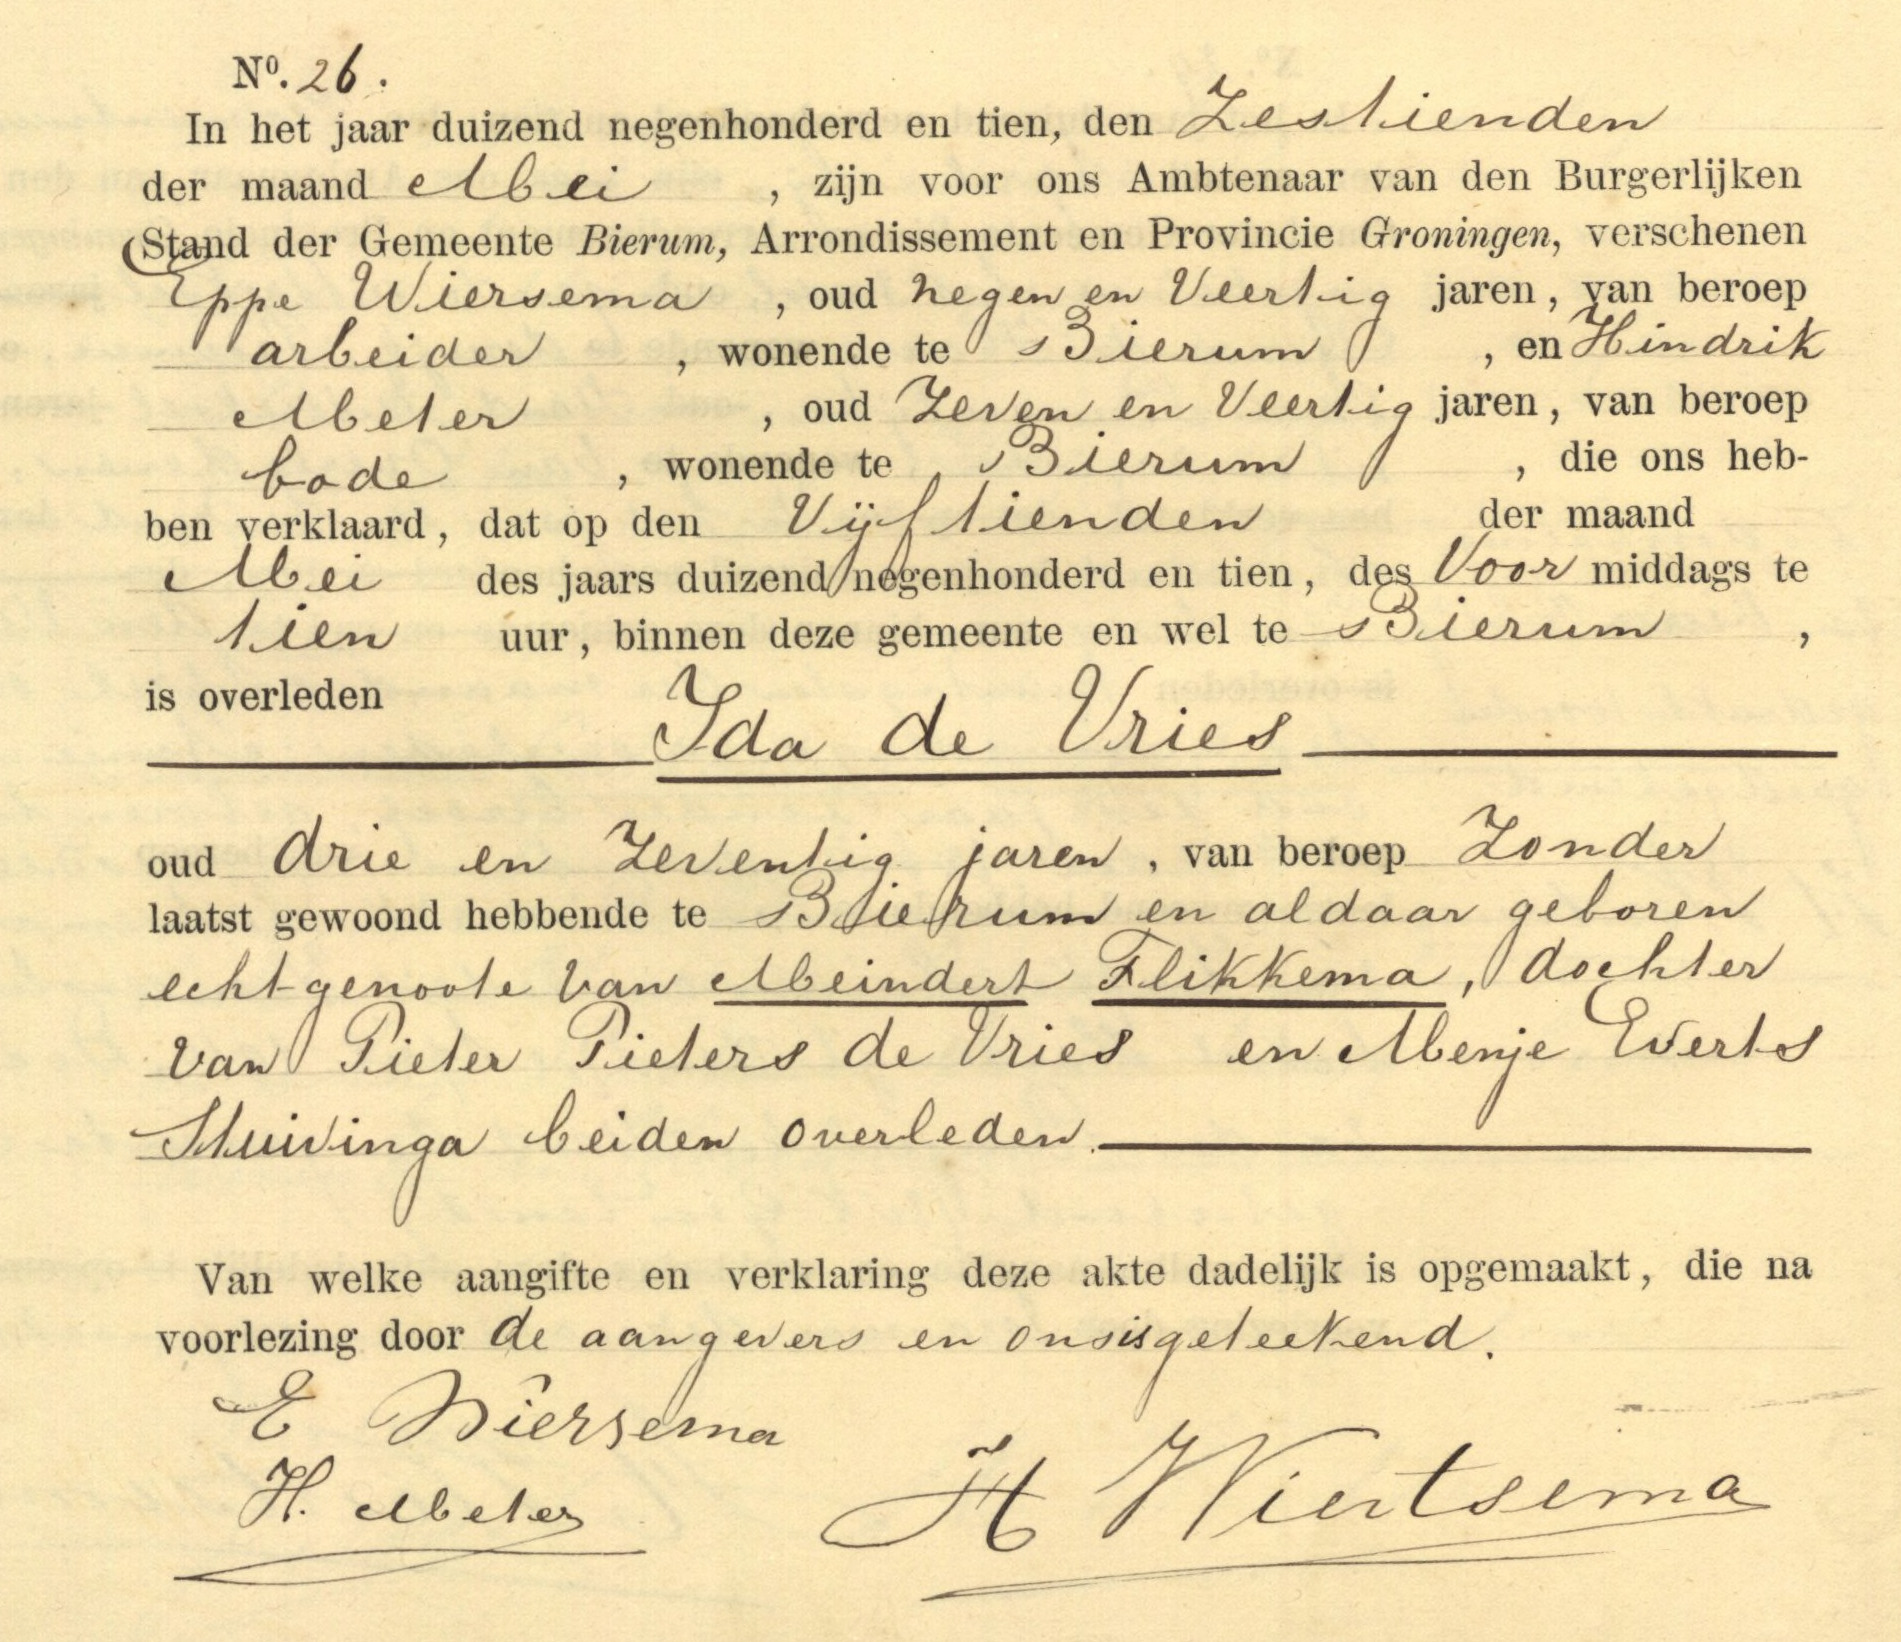 Nº. 26.
In het jaar duizend negenhonderd en tien, den Zestienden
der maand Mei , zijn voor ons Ambtenaar van den Burgerlijken
Stand der Gemeente Bierum, Arrondissement en Provincie Groningen, verschenen
Eppe Wiersema , oud negen en Veertig jaren, van beroep
arbeider , wonende te Bierum , en Hindrik
Meter , oud Zeven en Veertig jaren, van beroep
bode , wonende te Bierum , die ons heb-
ben verklaard, dat op den Vijftienden der maand
Mei des jaars duizend negenhonderd en tien, des Voor middags te
tien uur, binnen deze gemeente en wel te Bierum ,
is overleden
Ida de Vries
oud drie en Zeventig jaren , van beroep Zonder
laatst gewoond hebbende te Bierum en aldaar geboren
echtgenoote van Meindert Flikkema, dochter
van Pieter Pieters de Vries en Menje Everts
Stuivinga beiden overleden.
Van welke aangifte en verklaring deze akte dadelijk is opgemaakt, die na
voorlezing door de aangevers en ons is geteekend.
E Wiersema
H. Meter
H Wiertsema